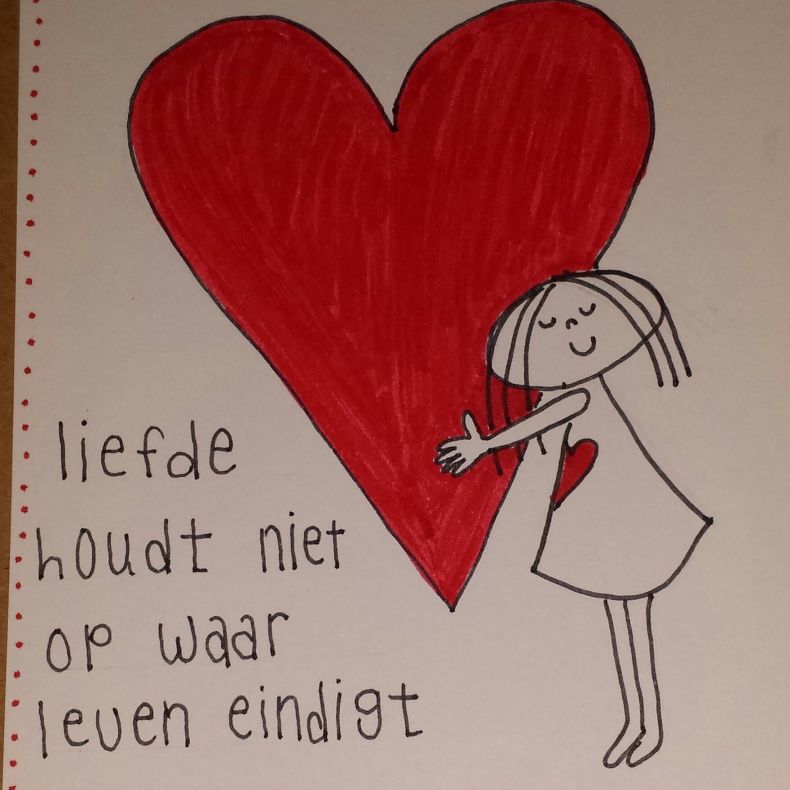 liefde
houdt niet
op waar
leven eindigt